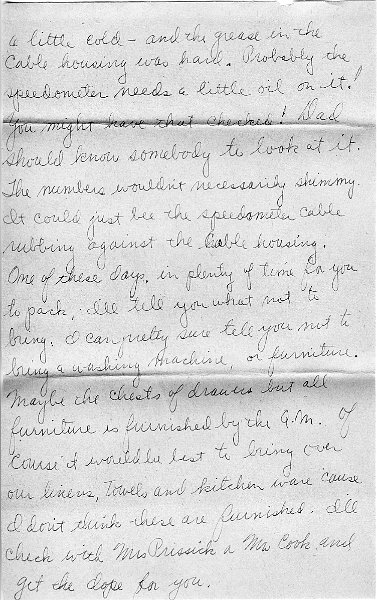 a little cold - and the grease in the
Cable housing was hard. Probably the
speedometer needs a little oil on it!
You might have that checked! Dad
should know somebody to look at it.
The numbers wouldn't necessarily shimmy.
It could just bee the speedometer cable
rubbing against the cable housing.
One of these days, in plenty of time for you
to pack, I'll tell you what not to
bring. I can pretty sure tell you not to
bring a washing machine, or furniture.
Maybe the chests of drawers but all
furniture is furnished by the G.M. Of
Couse it would be best to bring over
our linens, Towels and kitchen ware 'cause
I don't think these are furnished. I'll
check with Mrs Prissick a Mrs Cook and
get the dope for you.